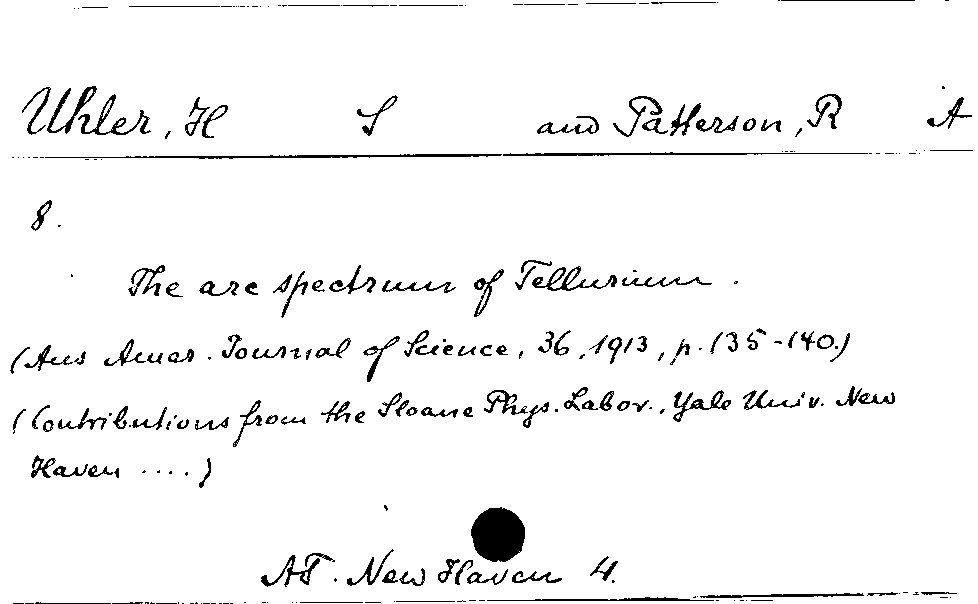 Uhler, H S and Patterson, R A
8.
The arc spectrum of Tellurium.
(Aus Amer. Journal of Science, 36, 1913, p. 135-140.)
(Contributions from the Sloane Phys. Labor., Yale Univ. New
Haven ....)
AT. New Haven 4.